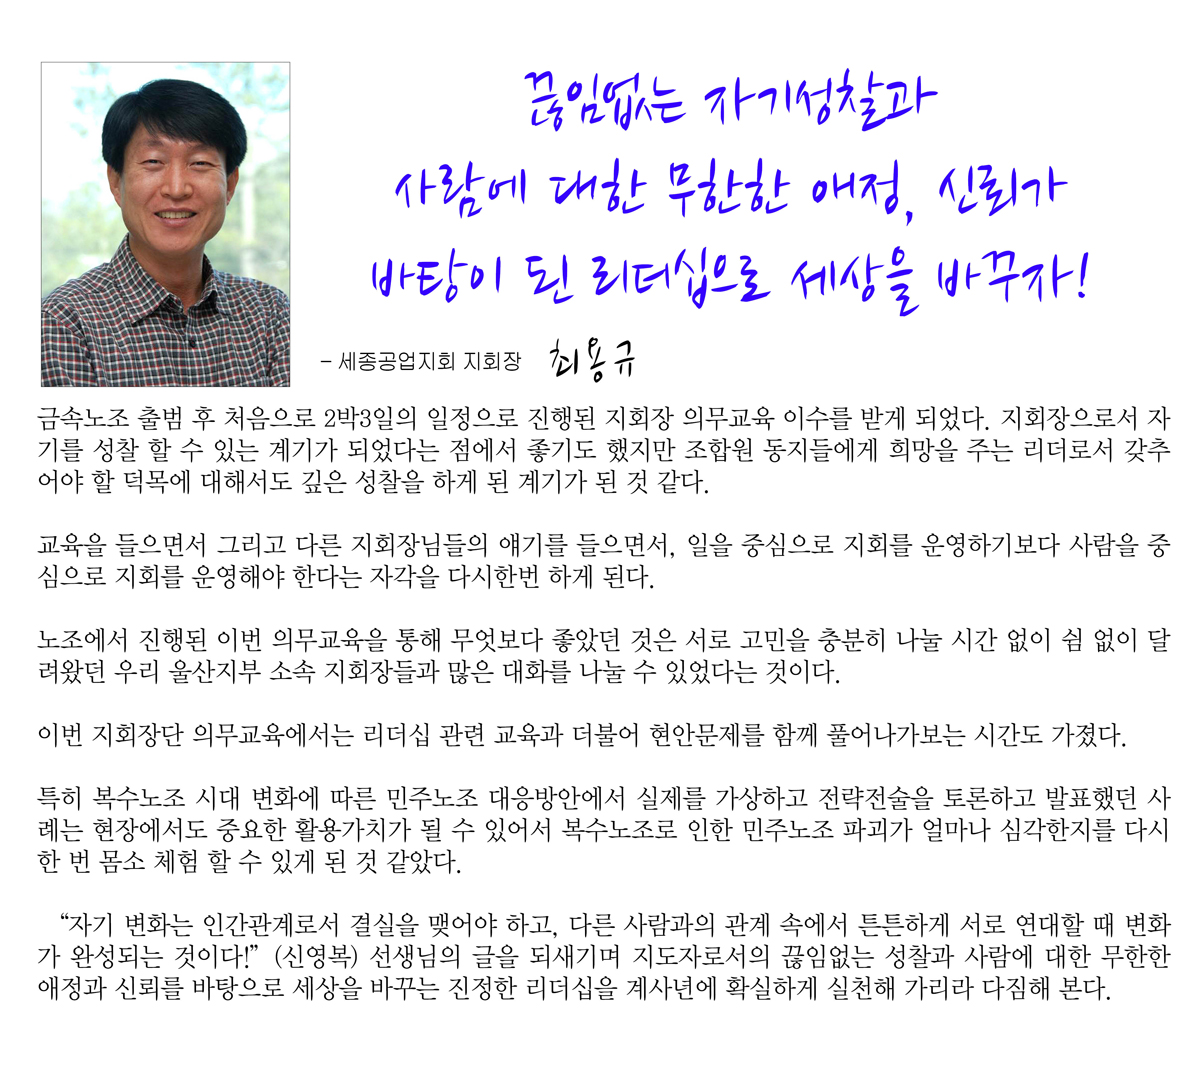 끊임없는 자기성찰과
사람에 대한 무한한 애정, 신뢰가
바탕이 된 리더십으로 세상을 바꾸자!
- 세종공업지회 지회장 최용규
금속노조 출범 후 처음으로 2박3일의 일정으로 진행된 지회장 의무교육 이수를 받게 되었다. 지회장으로서 자
기를 성찰 할 수 있는 계기가 되었다는 점에서 좋기도 했지만 조합원 동지들에게 희망을 주는 리더로서 갖추
어야 할 덕목에 대해서도 깊은 성찰을 하게 된 계기가 된 것 같다.
교육을 들으면서 그리고 다른 지회장님들의 얘기를 들으면서, 일을 중심으로 지회를 운영하기보다 사람을 중
심으로 지회를 운영해야 한다는 자각을 다시한번 하게 된다.
노조에서 진행된 이번 의무교육을 통해 무엇보다 좋았던 것은 서로 고민을 충분히 나눌 시간 없이 쉼 없이 달
려왔던 우리 울산지부 소속 지회장들과 많은 대화를 나눌 수 있었다는 것이다.
이번 지회장단 의무교육에서는 리더십 관련 교육과 더불어 현안문제를 함께 풀어나가보는 시간도 가졌다.
특히 복수노조 시대 변화에 따른 민주노조 대응방안에서 실제를 가상하고 전략전술을 토론하고 발표했던 사
례는 현장에서도 중요한 활용가치가 될 수 있어서 복수노조로 인한 민주노조 파괴가 얼마나 심각한지를 다시
한 번 몸소 체험 할 수 있게 된 것 같았다.
“자기 변화는 인간관계로서 결실을 맺어야 하고, 다른 사람과의 관계 속에서 튼튼하게 서로 연대할 때 변화
가 완성되는 것이다!” (신영복) 선생님의 글을 되새기며 지도자로서의 끊임없는 성찰과 사람에 대한 무한한
애정과 신뢰를 바탕으로 세상을 바꾸는 진정한 리더십을 계사년에 확실하게 실천해 가리라 다짐해 본다.